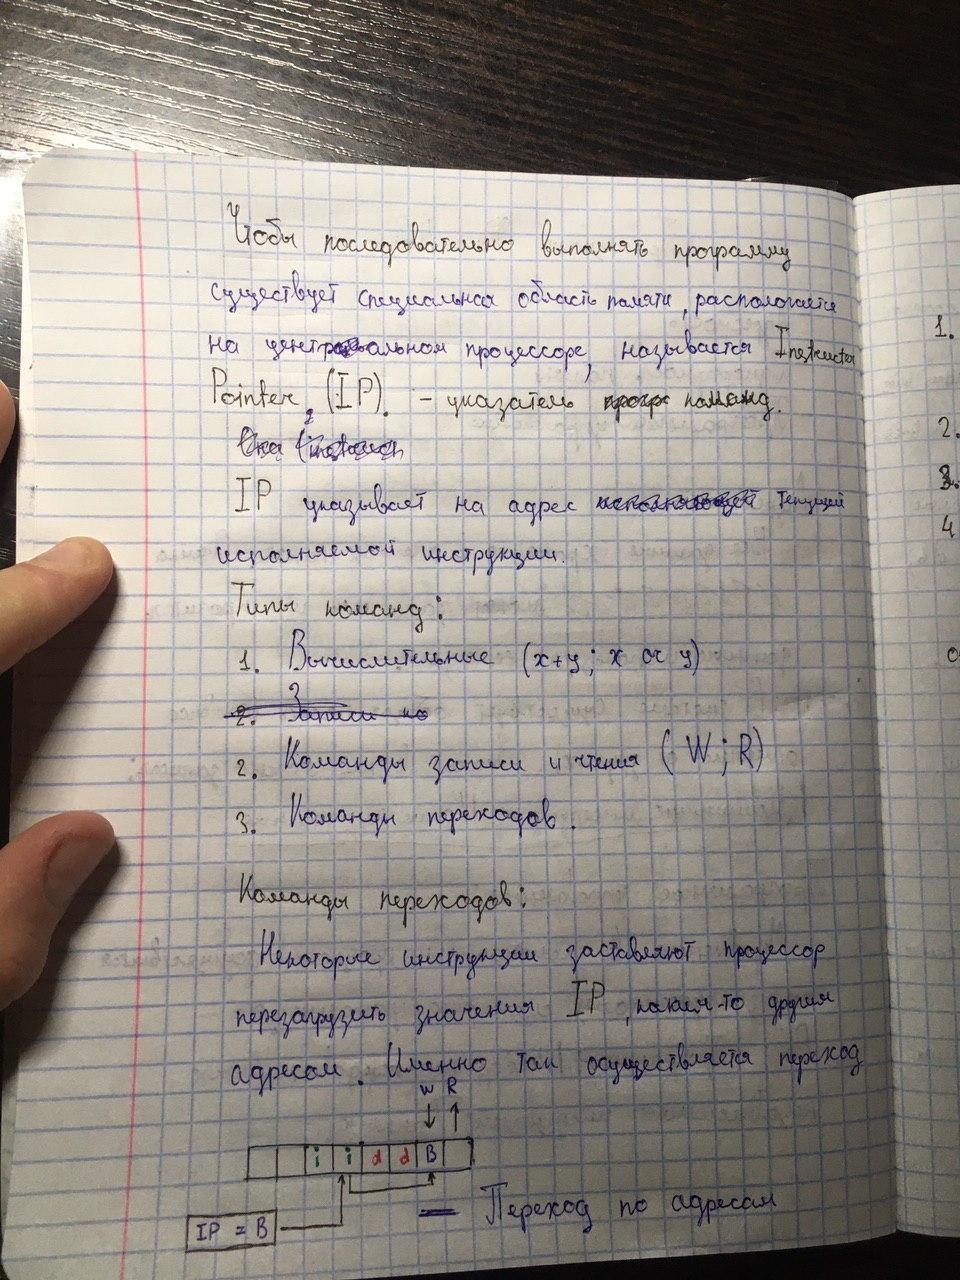 Чтобы последовательно выполнять программу
существует специальная область памяти, распологается
на центральном процессоре, называется Instructor
Pointer, (IP). – указатель команд.
IP указывает на адрес текущей
исполняемой инструкции.
Типы команд:
1. Вычислительные (x+y; x or y)
2. Записи
2. Команды записи и чтения (W; R)
3. Команды переходов.
Команды переходов:
Некоторые инструкции заставляют процессор
перезагрузить значения IP, каким-то другим
адресом. Именно так осуществляется переход
W R
i i d d B
IP = B
— Переход по адресам
1.
2.
3.
4